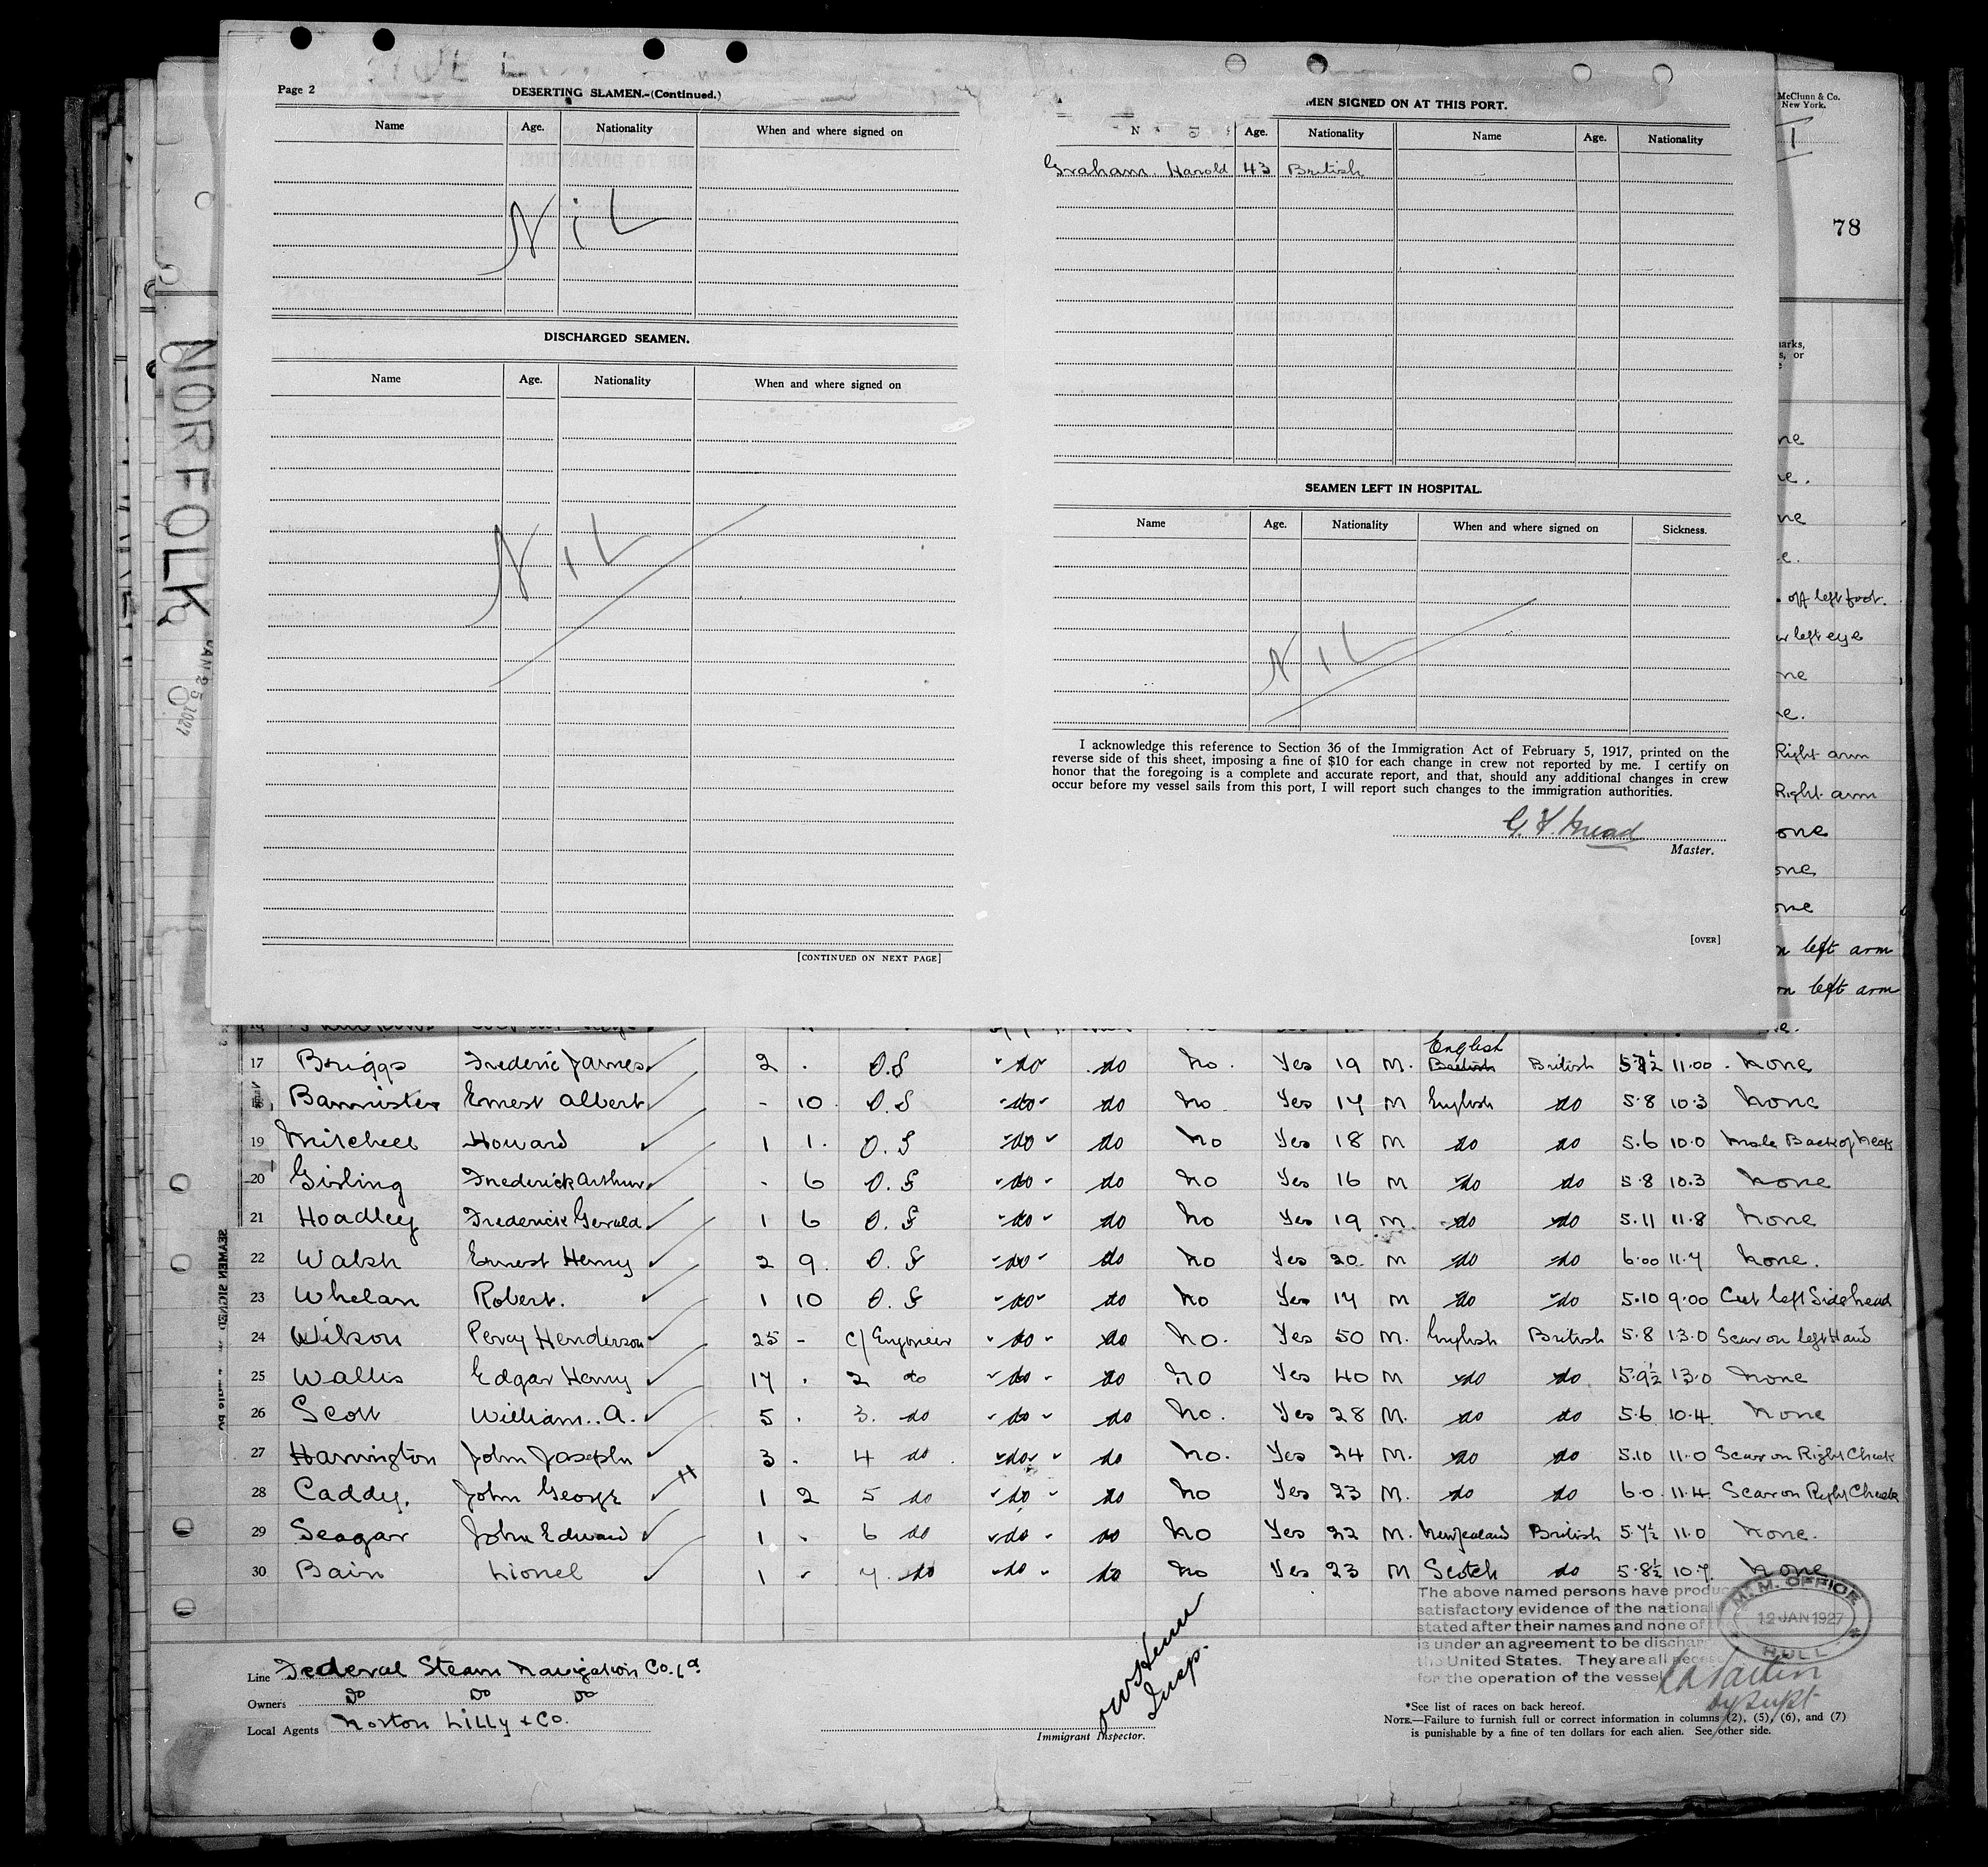 Page 2
DESERTING SEAMEN.-(Continued.)
Name Age. Nationality When and where signed on
Nil
DISCHARGED SEAMEN.
Name Age. Nationality When and where signed on
Nil
[CONTINUED ON NEXT PAGE]
MEN SIGNED ON AT THIS PORT.
Age. Nationality Name Age. Nationality
Graham. Harold 43 British
SEAMEN LEFT IN HOSPITAL.
Name Age. Nationality When and where signed on Sickness.
Nil
I acknowledge this reference to Section 36 of the Immigration Act of February 5, 1917, printed on the
reverse side of this sheet, imposing a fine of $10 for each change in crew not reported by me. I certify on
honor that the foregoing is a complete and accurate report, and that, should any additional changes in crew
occur before my vessel sails from this port, I will report such changes to the immigration authorities.
Master.
[OVER]
McClunn & Co.
New York.
1
78
NORFOLK
off left foot.
left eye
Right arm
Right arm
left arm
left arm
17 Briggs Frederic James 2 . O.S do do no. Yes 19 M. English British British 11.00 . none
18 Bannister Ernest Albert - 10 O.S do do no Yes 17 M English do 5.8 10.3 none
19 Mitchell Howard 1 1. O.S do do no Yes 18 M do do 5.6 10.0 mole Back of neck
20 Girling Frederick Arthur - 6 O.S do do no Yes 16 M do do 5.8 10.3 none
21 Hoadley Frederick Gerald 1 6 O.S do do no Yes 19 M. do do 5.11 11.8 none
22 Walsh Ernest Henry 2 9. O.S do do no Yes 20 M do do 6.00 11.7 none.
23 Whelan Robert. 1 10 O.S do do no Yes 17 M do do 5.10 9.00 Cut left Side head
24 Wilson Percy Henderson 25 - C/Engineer do do no. Yes 50 M. English British 5.8 13.0 Scar on left Hand
25 Wallis Edgar Henry 17 . 2 do do do no Yes 40 M do do 5.9½ 13.0 none
26 Scott William. A. 5 . 3. do do do no. Yes 28 M. do do 5.6 10.4 none
27 Harrington John Joseph 3 . 4 do do do no. Yes 24 M. do do 5.10 11.0 Scar on Right Cheek
28 Caddy. John George 1 2 5 do do do no Yes 23 M. do do 6.0. 11.4. Scar on Right Cheek
29 Seagar John Edward 1 - 6 do do do no Yes 22 M. New Zealand British 5.7½ 11.0 none.
30 Bain Lionel 1 - 7 do do do no Yes 23 M Scotch do 5.8½ 10.7. none
The above named persons have
satisfactory evidence of the
stated after their names and none of
is under an agreement to be
the United States. They are all
for the operation of the vessel
M.M. OFFICE
12 JAN 1927
HULL
Line Federal Steam Navigation Co. Ld
Owners Do Do Do
Local Agents Norton Lilly & Co.
Insp.
Immigrant Inspector.
*See list of races on back hereof.
NOTE.—Failure to furnish full or correct information in columns (2), (5), (6), and (7)
is punishable by a fine of ten dollars for each alien. See other side.